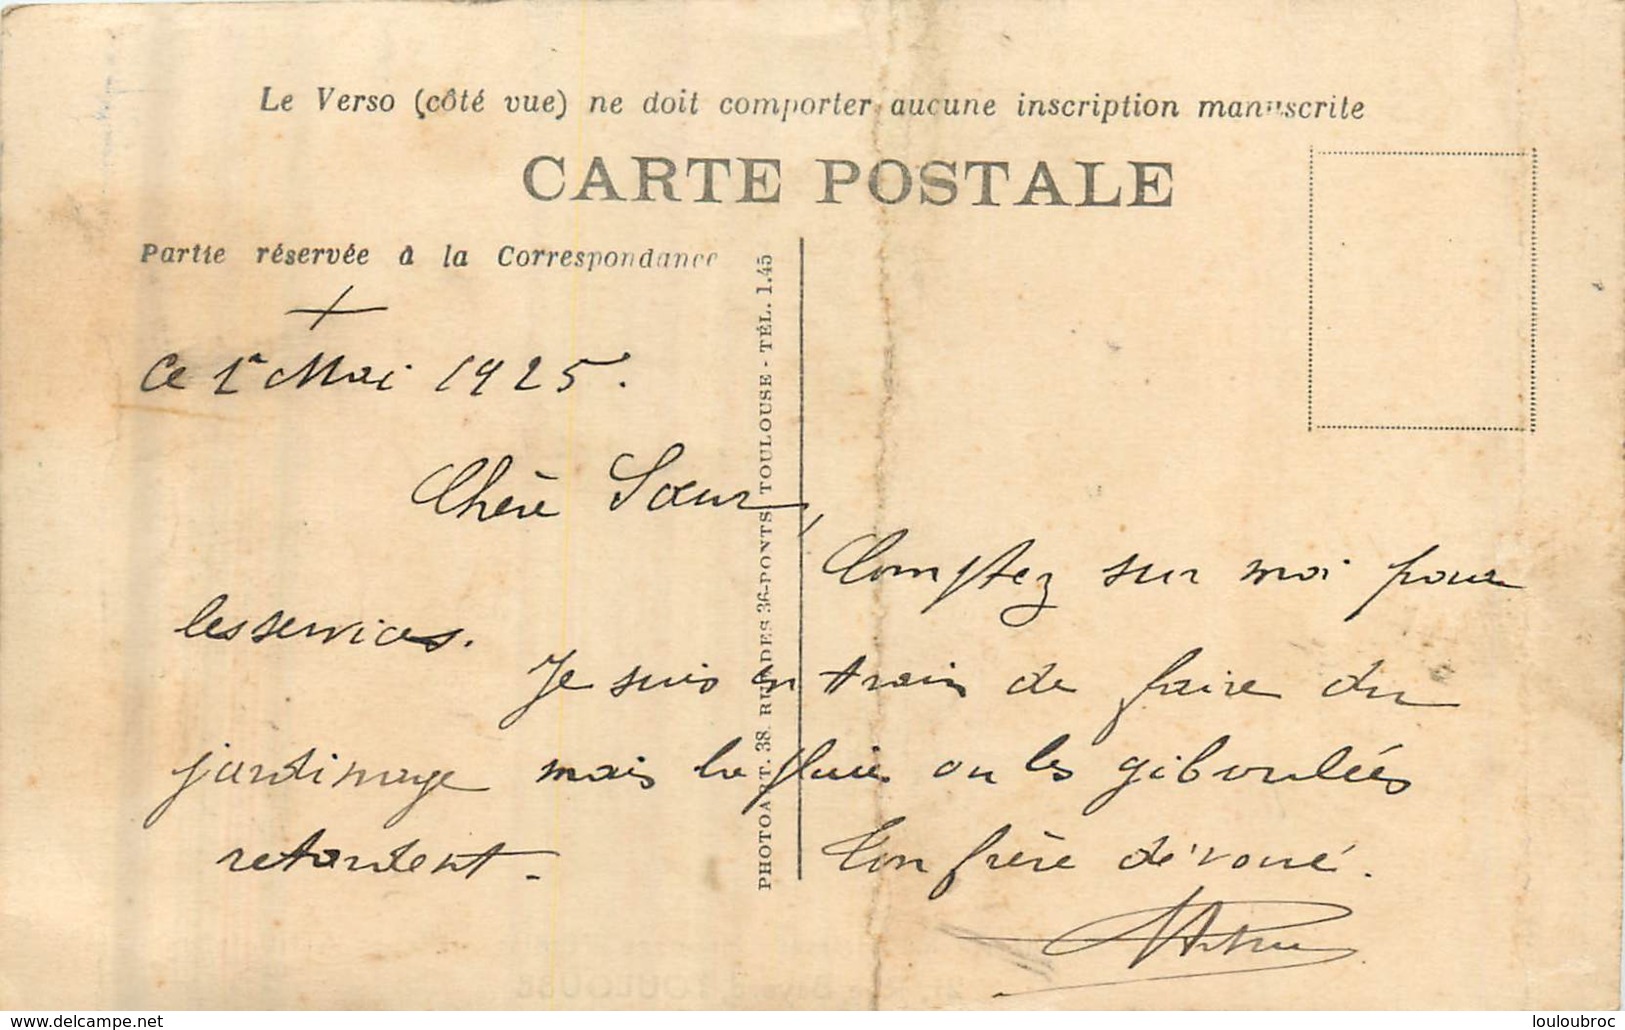 Le Verso (côté vue) ne doit comporter aucune inscription manuscrite
CARTE POSTALE
Partie réservée à la Correspondance
PHOTOART. 38, RIV DES 36-PONTS TOULOUSE - TÉL. 1.45
Ce 1r Mai 1925.
Chère Sœur,
Comptez sur moi pour
les services.
Je suis en train de faire du
jardinage mais la pluie ou les giboulées
retardent.
Ton frère dévoué.
Arthur
TOULOUSE
delcampe.net
louloubroc